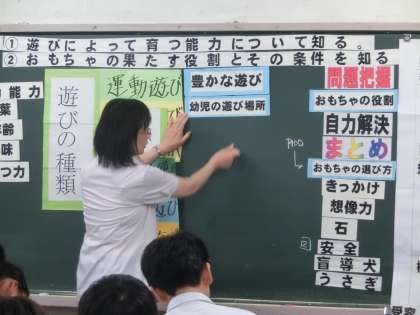 ① 遊びによって育つ能力について知る。
② おもちゃの果たす役割とその条件を知る
能力
葉
年齢
味
つ力
遊びの種類
運動遊び
豊かな遊び
幼児の遊び場所
問題把握
おもちゃの役割
自力解決
まとめ
おもちゃの選び方
きっかけ
想像力
石
安全
盲導犬
うさぎ